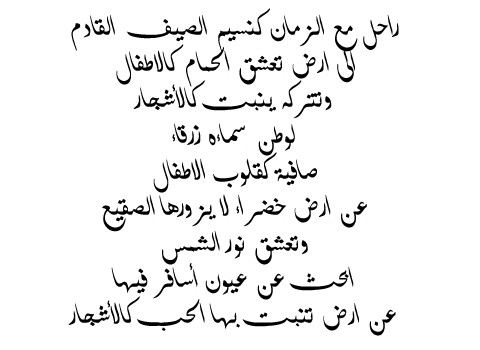 راحل مع الزمان كنسيم الصيف القادم
الى ارض تعشق الحمام كالاطفال
وتتركه ينبت كالأشجار
لوطن سماءه زرقاء
صافية كقلوب الاطفال
عن ارض خضراء لا يزورها الصقيع
وتعشق نور الشمس
ابحث عن عيون أسافر فيها
عن ارض تنبت بها الحب كالأشجار